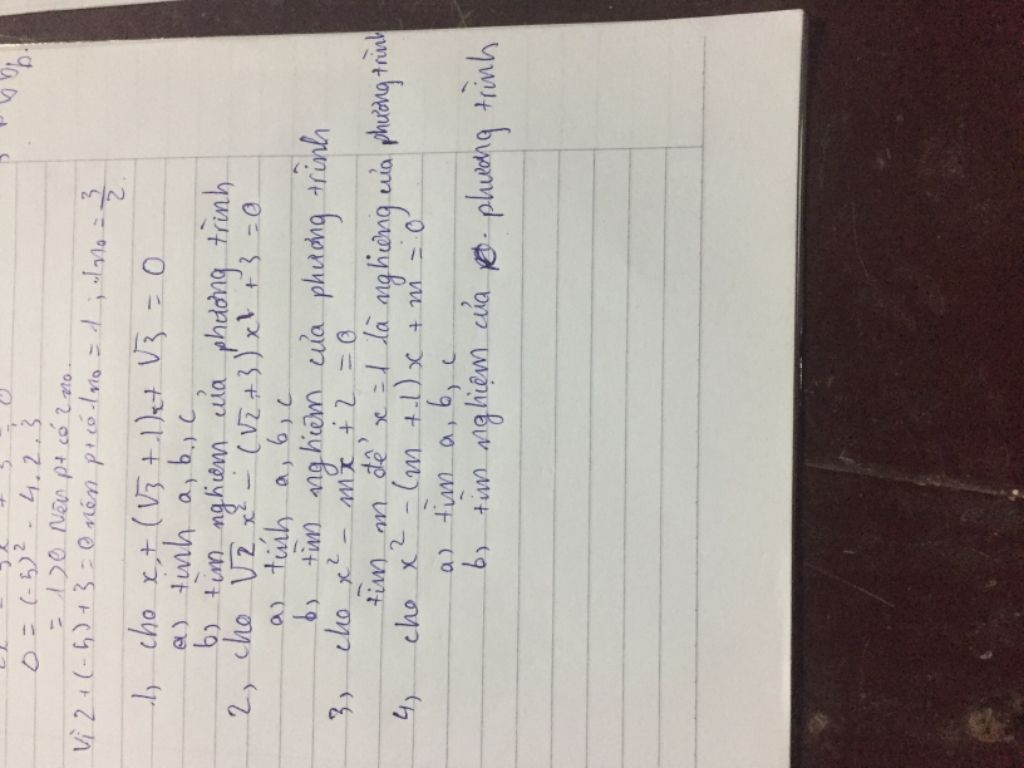 = (-5)² - 4.2.3
= 1 > 0 Nên pt có 2 no.
Vì 2 + (-5) + 3 = 0 nên pt có 1 no = 1 ; 1 no = 3/2.
1, cho x + (√3 + 1)x + √3 = 0
a) tính a, b, c
b, tìm nghiệm của phương trình
2, cho √2 x² - (√2 + 3) x + 3 = 0
a) tính a, b, c
b, tìm nghiệm của phương trình
3, cho x² - mx + 2 = 0
tìm m để x = 1 là nghiệm của phương trình
4, cho x² - (m + 1) x + m = 0
a) tìm a, b, c
b, tìm nghiệm của phương trình